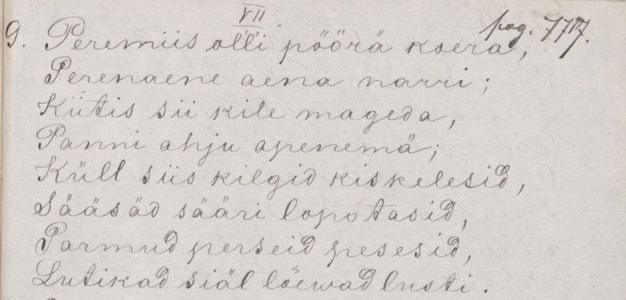 VII
pag. 777.
9. Peremiis olli pöörä koera,
Perenaene aena narri;
Kütis sii kile mageda,
Panni ahju apenemä;
Küll siis kilgid kiskelesid,
Sääsäd sääri lopotasid,
Parmud perseid pesesid,
Lutikad siäl löewad lusti.